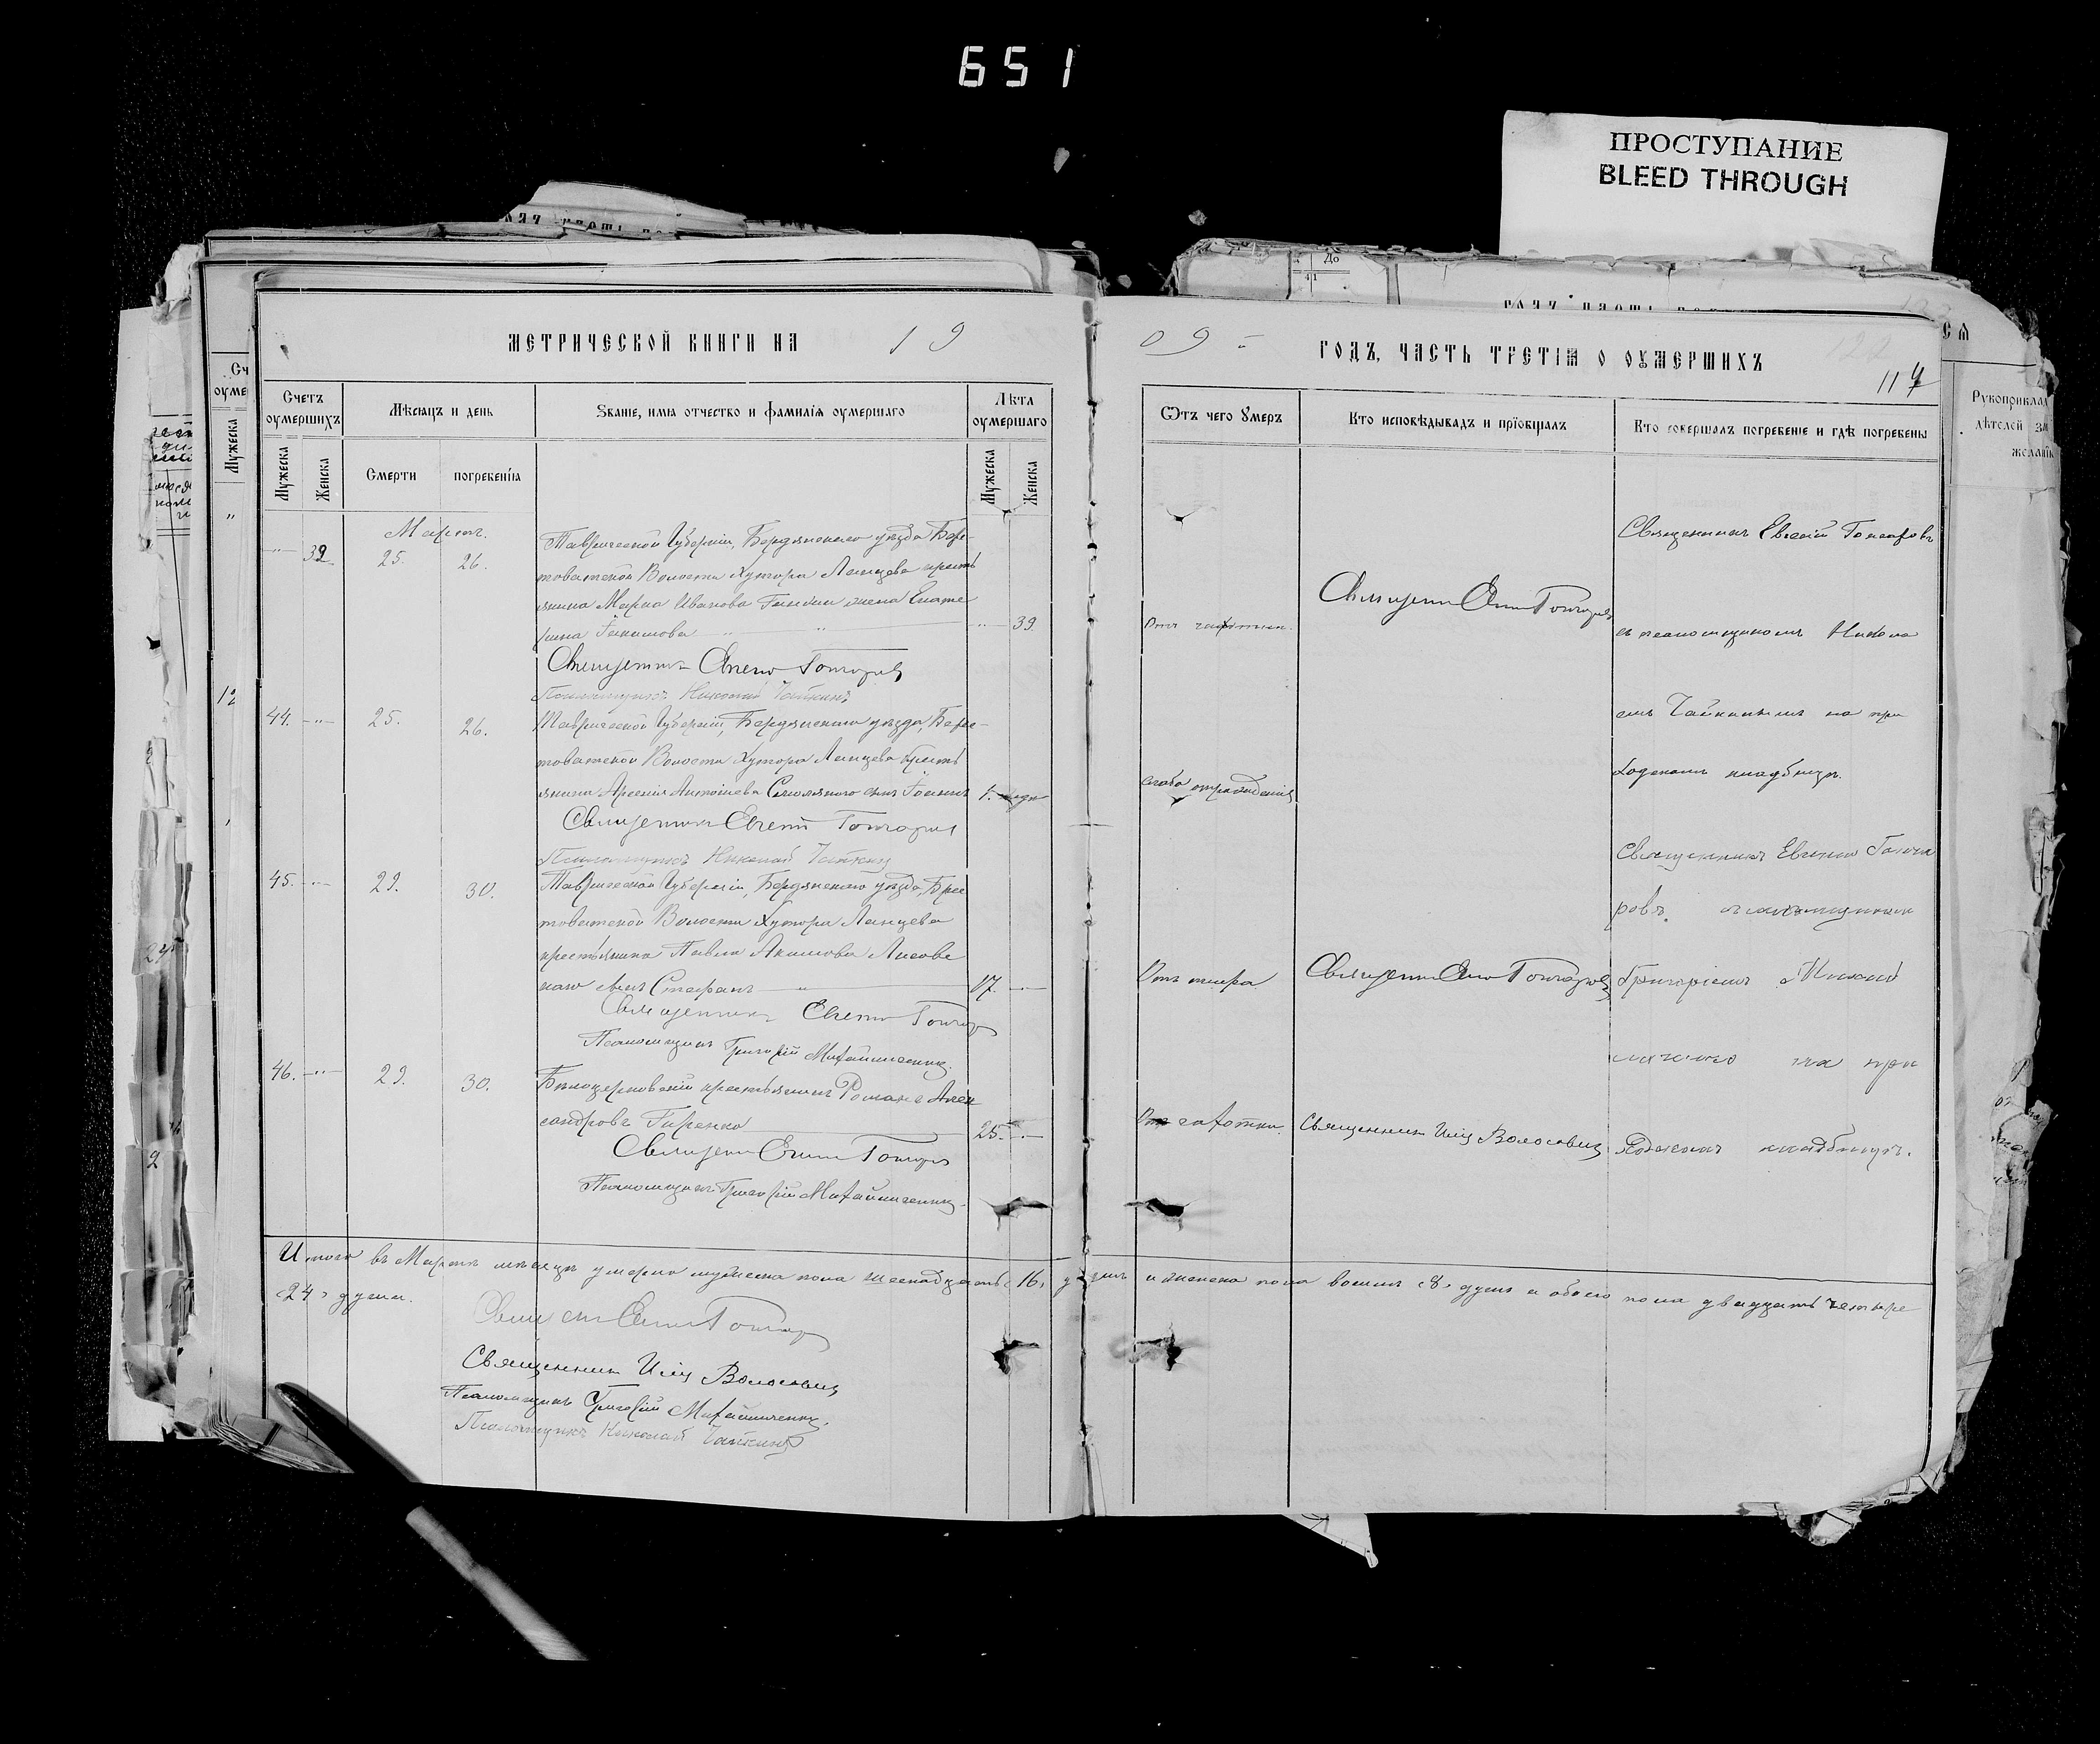 651
ПРОСТУПАНИЕ
BLEED THROUGH
МЕТРИЧЕСКОЙ КНИГИ НА 19
09 ГОДЪ, ЧАСТЬ ТРЕТІЯ О ОУМЕРШИХЪ
117
Счетъ оумершихъ
Мѣсяцъ и день
Званіе, имя отчество и фамилія оумершаго
Лѣта оумершаго
Мужеска
Женска
Смерти
погребенія
Мужеска
Женска
Ѿтъ чего Умеръ
Кто исповѣдывалъ и пріобщалъ
Кто совершалъ погребеніе и гдѣ погребены
Мартъ.
32. 25. 26.
Таврической Губерніи, Бердянскаго уѣзда Бере-
стоватской Волости Хутора Ланцева кресть
янина Марка Иванова жена Екате
рина 39.
Священникъ Гончаровъ
Псаломщикъ Николай Чайкинъ
44. 25. 26.
Таврической Губерніи, Бердянскаго уѣзда, Бере-
стоватской Волости Хутора Ланцева кресть
янина Арсенія сынъ Іоаннъ 1.
Священникъ Евгеній Гончаровъ
Псаломщикъ Николай Чайкинъ
45. 29. 30.
Таврической Губерніи, Бердянскаго уѣзда, Бере
стоватской Волости Хутора Ланцева
крестьянина Павла Акимова Лисове
наго сынъ Стефанъ 17.
Священникъ Евгеній Гончаровъ
Псаломщикъ Григорій Михайличенко.
46. 29. 30.
Бѣлоцерковскій крестьянинъ Романъ Алек
сандровъ Гиренко 25.
Священникъ Евгеній Гончаровъ
Псаломщикъ Григорій Михайличенко.
Отъ чахотки.
Священникъ Гончаровъ
Священникъ Евгеній Гончаровъ
съ псаломщикомъ Никола
емъ Чайкинымъ на при
ходскомъ кладбищѣ.
слабо отъ рожденія
Священникъ Евгеній Гонча
ровъ псаломщикомъ
Отъ тифа
Священникъ Гончаровъ
Григоріемъ Михай
на при
Отъ чахотки.
Священникъ Илія Волосевичъ
ходскомъ кладбищѣ.
Итого въ Мартѣ мѣсяцѣ умерло мужеска пола шеснадцать (16) душъ и женска пола восемь (8) душъ а обоего пола двадцать четыре
(24) души.
Священникъ Гончаровъ
Священникъ Илія Волосевичъ
Псаломщикъ Григорій Михайличенко.
Псаломщикъ Николай Чайкинъ